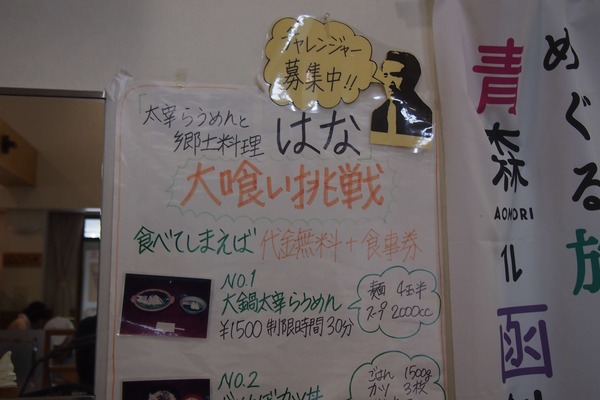 チャレンジャー
募集中!!
太宰らうめんと
郷土料理 はな
大喰い挑戦
食べてしまえば 代金無料+食事券
NO.1
大鍋太宰らうめん
¥1500 制限時間30分
麺 4玉半
スープ 2000cc
NO.2
ごはん 1500g
カツ 3枚
めぐる旅
青森
AOMORI
函